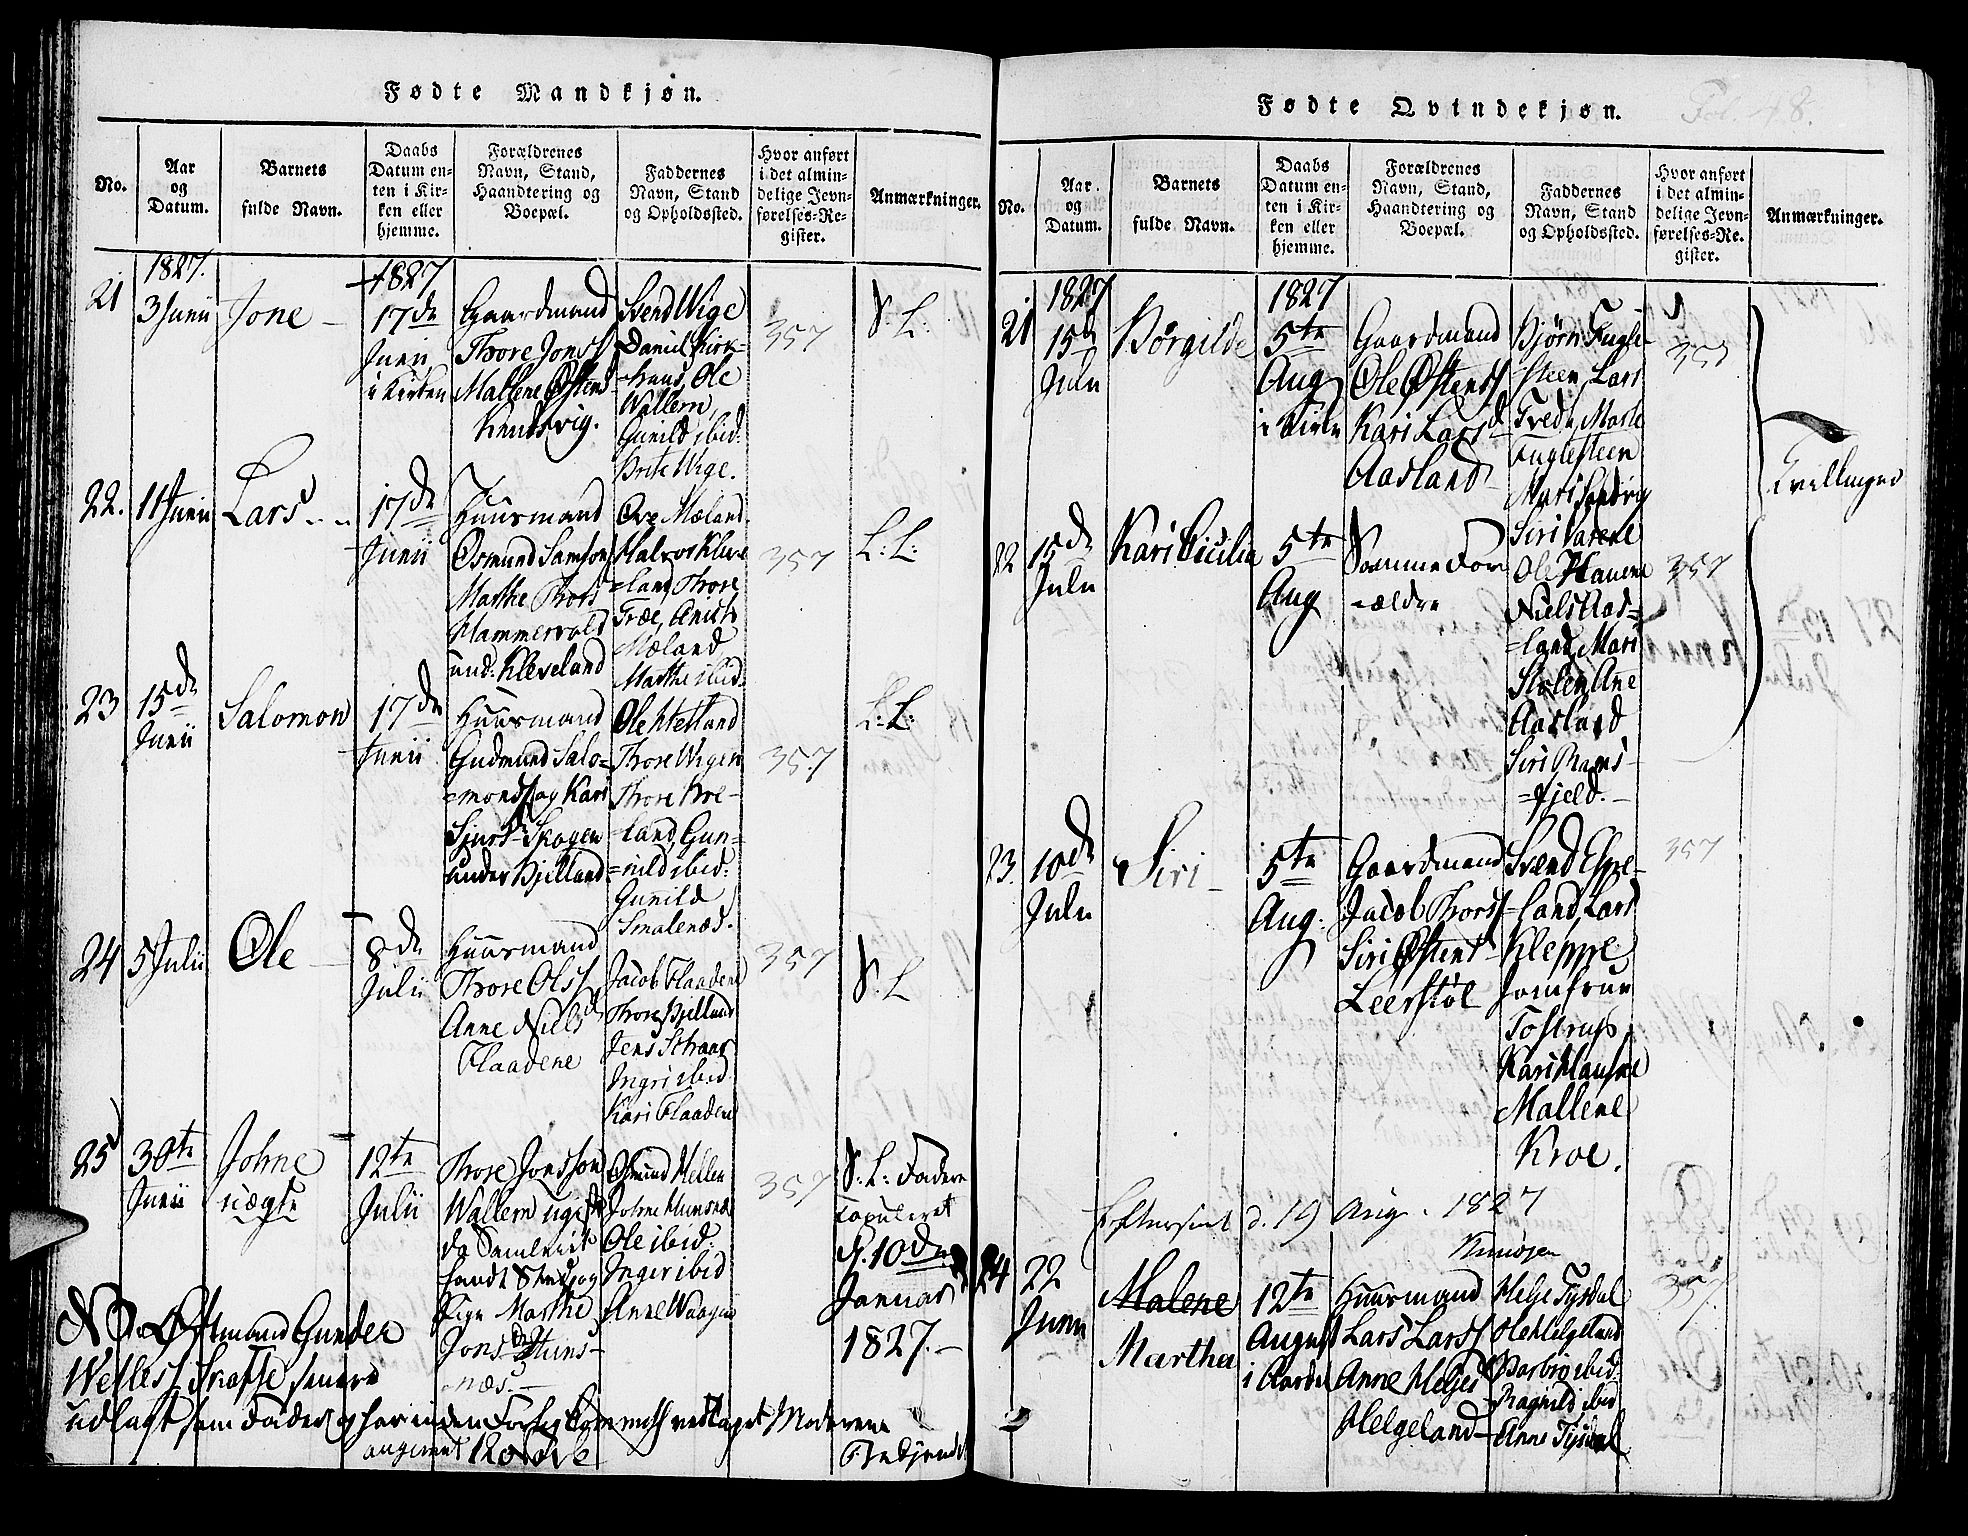 Fødte Mandkjøn.
No.
Aar
og
Datum.
Barnets
fulde Navn.
Daabs
Datum en-
ten i Kir-
ken eller
hjemme.
Forældrenes
Navn, Stand,
Haandtering og
Boepæl.
Faddernes
Navn, Stand
og Opholdssted.
Hvor anført
i det almin-
delige Jevn-
førelses-Re-
gister.
Anmærkninger.
21
1827.
3 Junii
Jone
1827
17de
Junii
i Kirken
Gaardmand
Thore Jons
Mallene Østens
Knudsvig.
Svend Wige
Daniel Kirk-
huus, Ole
Wallem,
Gunild ibid.
Brite Wige.
357
S. L.
22.
11 Junii
Lars
17de
Junii
Huusmand
Osmund Samson
Marthe Thors
Hammervold
und. Kleveland
Ove Mæland
Halvor Kleve
=land, Thore
Træe,
Mæland
Marthe ibid.
357
L: L:
23
15de
Junii
Salomon
17de
Junii
Huusmand
Gudmund Salo=
=monds og Kari
Sjurs Skogen
under Bjelland
Ole Hetland
Thore Wigen
Thore Kroe-
=land, Gun=
=nild ibid:
Gunild
Smalenæs.
357
L: L:
24
5 Julii
Ole
8de
Julii
Huusmand
Thore Olss
Anne Niels
Flaadene
Jacob Flaadene
Thore Bjelland
Jens
Ingri ibid.
Kari Flaadene
357
S. L
25
30te
Junii
Johne
uægte
12te
Julii
Thore Jonsson
Wallem
Pige Marthe
Jonsd Huns-
næs.
Osmund Hellen
Johne Hunsnæs
Ole ibid.
Inger ibid
Anne Waage
357
S. L: Faderen
copuleret
d. 10de
Januar
1827.
NB. Østmand Gunder
udlagt som Fader og har i den Forlig
Moderens
angivent
Fødte Qvindekjøn.
Fol. 48.
No.
Aar.
og
Datum.
Barnets
fulde Navn.
Daabs
Datum en-
ten i Kir-
ken eller
hjemme.
Forældrenes
Navn, Stand,
Haandtering og
Boepæl.
Faddernes
Navn, Stand
og Opholdssted.
Hvor anført
i det almin-
delige Jevn-
førelses-Re.
gister.
Anmærkninger.
21
1827
15de
Julii
Børgilde
1827
5te
Aug
i Kirken
Gaardmand
Ole Østens
Kari Larsd
Aasland
Bjørn Fugle-
steen, Lars
Tvedt, Marte
Fuglesteen
Mari Sandvig
357
Tvillinger
22
15de
Julii
Kari Cicilia
5te
Aug
Samme For
=ældre
Siri Varene
Ole Havene
Niels Aas=
=land, Mari
Stølen, Ane
Aasland
Siri Rams-
=fjeld.
357
23.
10de
Julii
Siri
5te
Aug.
Gaardmand
Jacob Thorss
Siri Østens
Leerstøl
Svend Espe-
land, Lars
Kleppe
Jomfrue
Tostrup
Kari
Mallene
Kroe.
357
Efterseet d. 19 Aug. 1827
24
22
Junii
Malene
Martha
12te
August
i Aardal
Huusmand
Lars Larss
Anne Helges
Helgeland
Helje Tysdal
Ole Helgeland
Barbro ibid.
Ragnild ibid
Anne Tysdal
357.